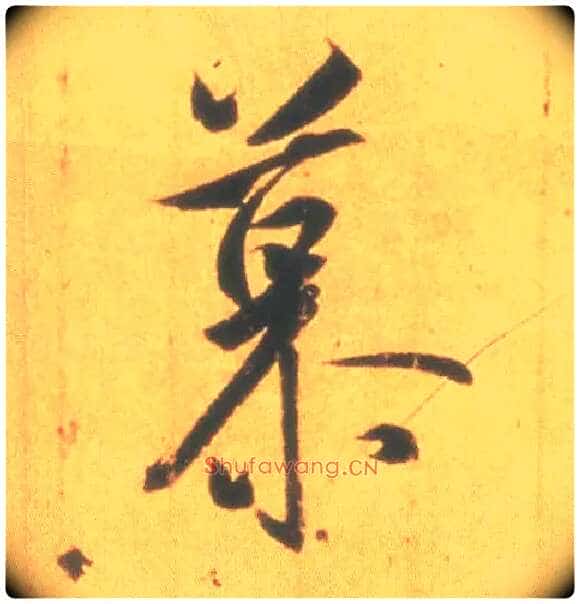 慕
Shufawang.CN